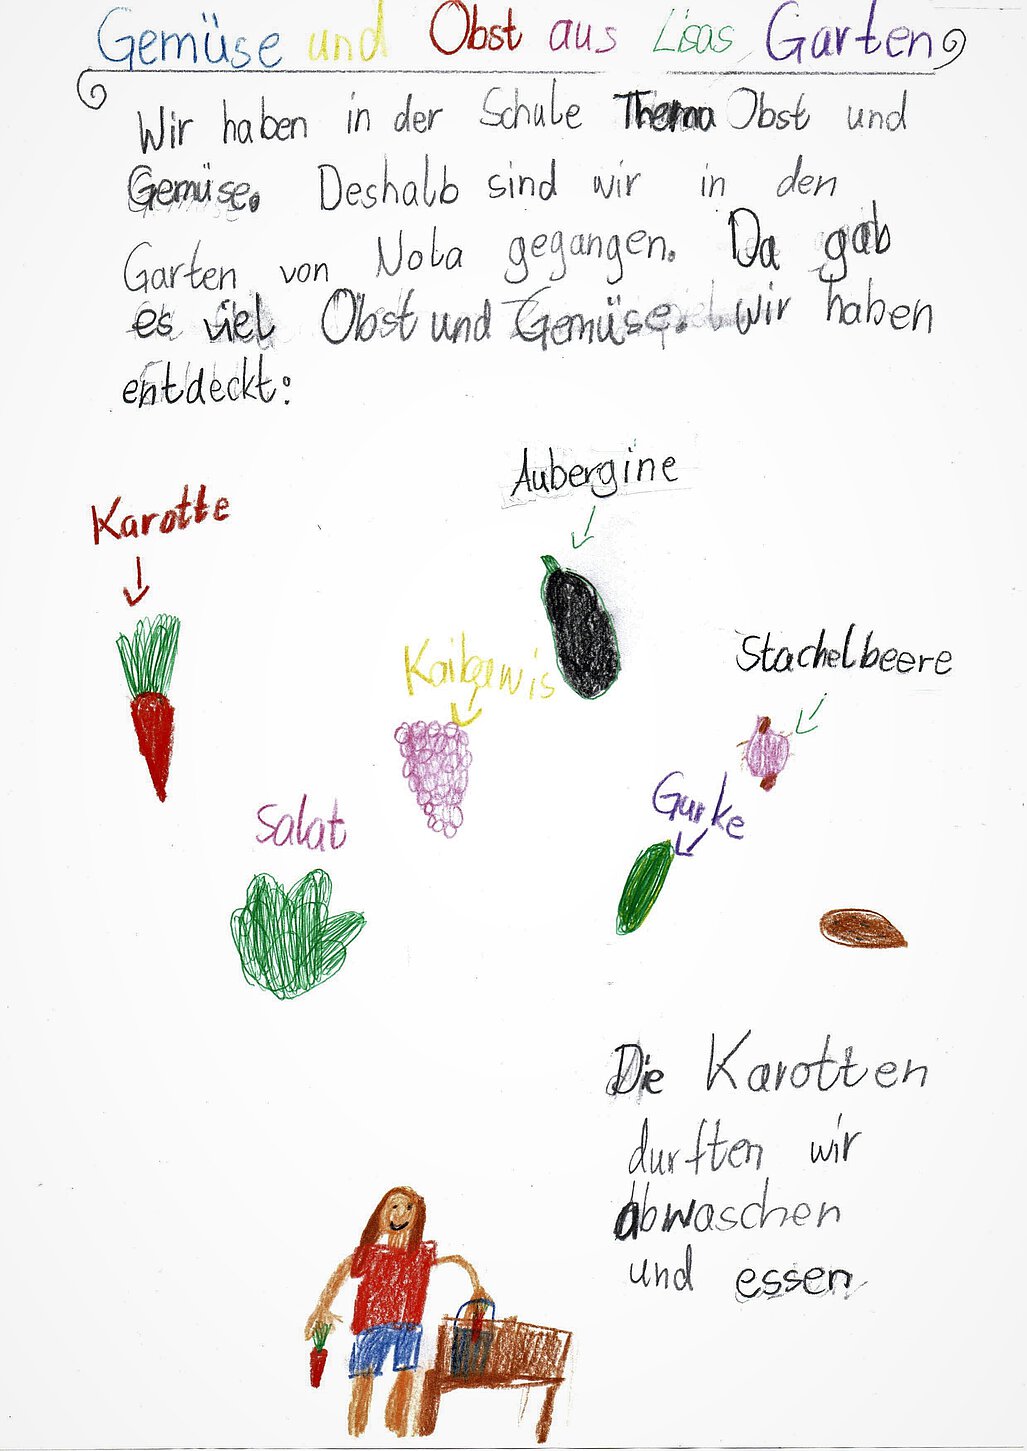 Gemüse und Obst aus Lisas Garten
Wir haben in der Schule Thema Obst und
Gemüse. Deshalb sind wir in den
Garten von Nola gegangen. Da gab
es viel Obst und Gemüse. wir haben
entdeckt:
Aubergine
Karotte
Stachelbeere
Gurke
Salat
Die Karotten
durften wir
abwaschen
und essen